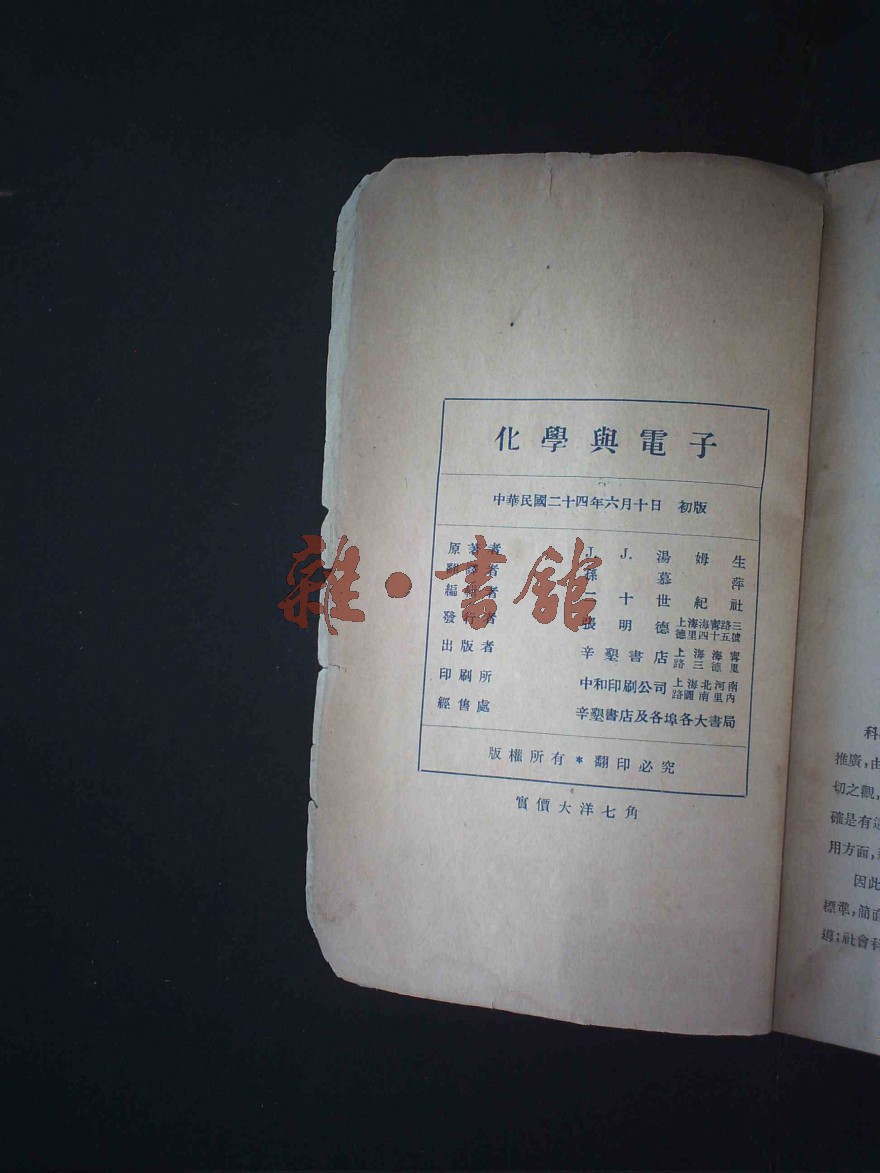 化學與電子
中華民國二十四年六月十日 初版
原著者 J. J. 湯姆生
翻譯者 孫慕萍
編輯者 二十世紀社
發行者 張明德 上海海甯路三德里四十五號
出版者 辛墾書店 上海海甯路三德里
印刷所 中和印刷公司 上海北河南路圖南里內
經售處 辛墾書店及各埠各大書局
版權所有*翻印必究
實價大洋七角
雜·書館
科
推廣,由
切之觀,
確是有這
用方面,
因此
標準,簡直
導;社會科